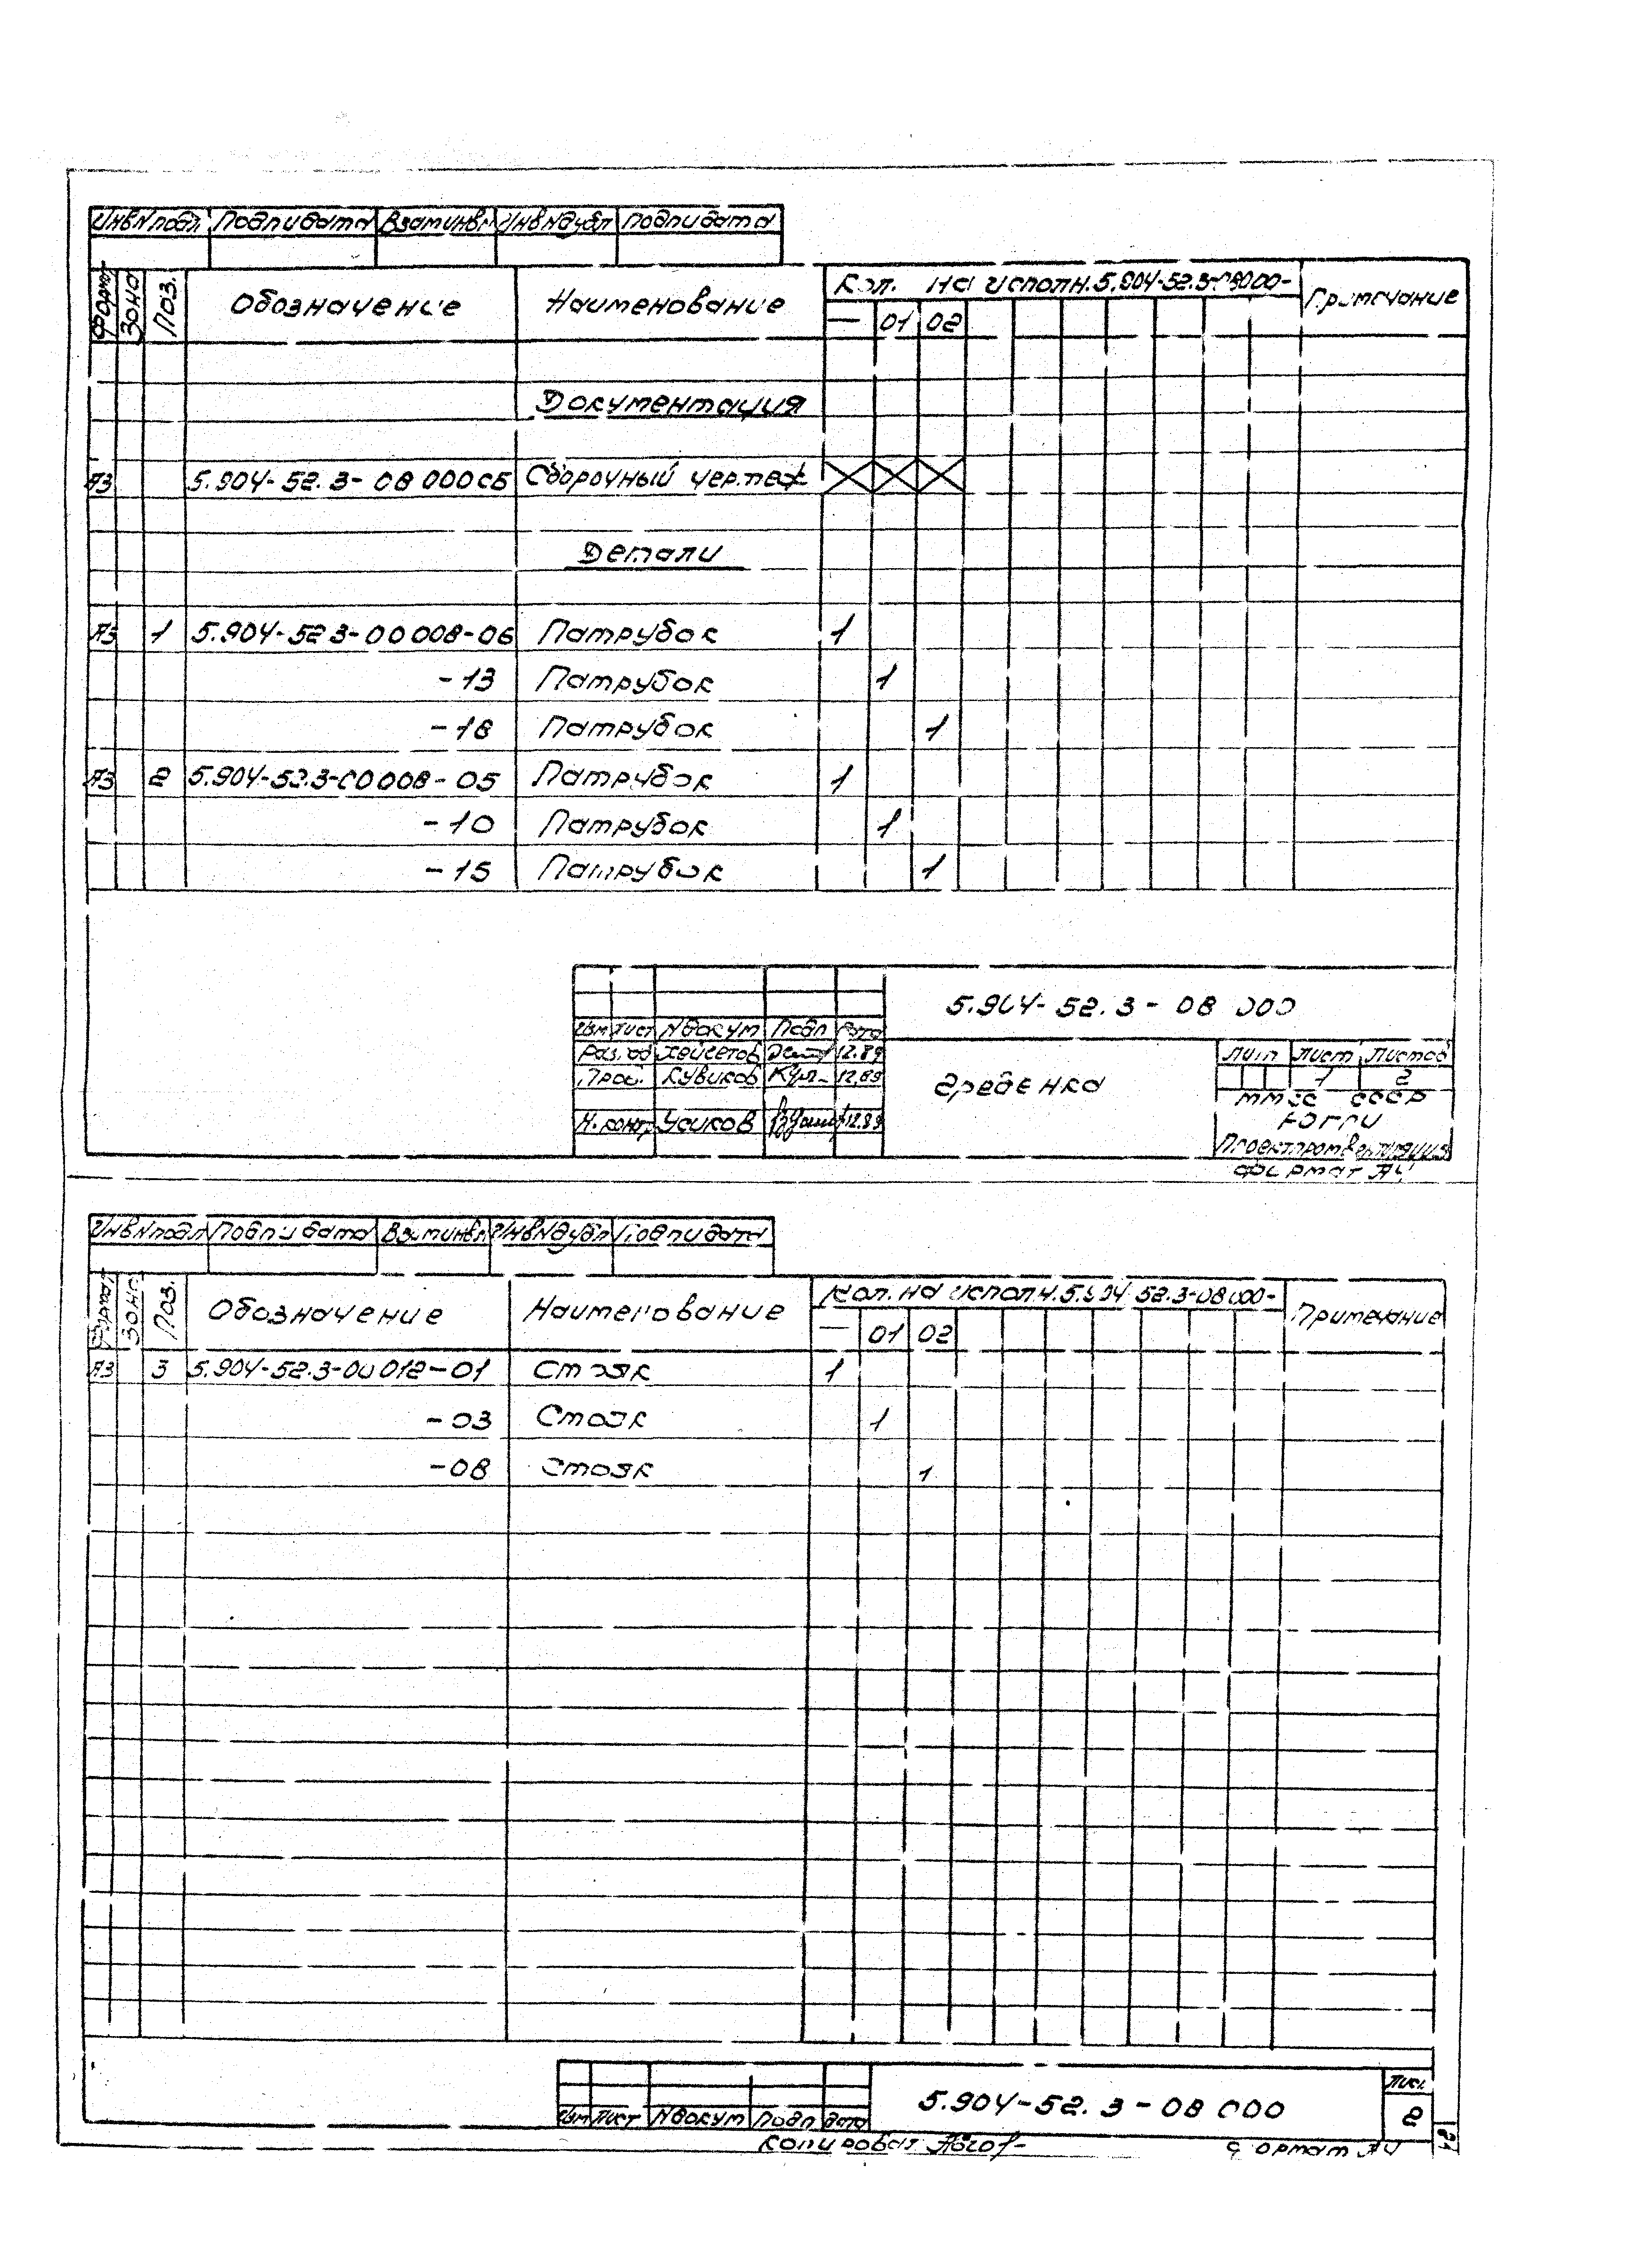 Инв N подл Подп и дата Взам инв N Инв N дубл Подп и дата
Формат Зона Поз. Обозначение Наименование Кол. на исполн. 5.904-52.3-08000- Примечание
— 01 02
Документация
А3 5.904-52.3-08 000 СБ Сборочный чертеж
Детали
А3 1 5.904-52 3-00 008-06 Патрубок 1
-13 Патрубок 1
-18 Патрубок 1
А3 2 5.904-52.3-00 008-05 Патрубок 1
-10 Патрубок 1
-15 Патрубок 1
5.904-52.3-08 000
Изм Лист N докум Подп Дата
Разраб 12.89
Пров. Кувиков 12.89
Н. контр Усиков 12.89
Гребенка
Лит Лист Листов
1 2
ММСС СССР
Проектпромвентиляция
формат А4
Инв N подл Подп и дата Взам инв N Инв N дубл Подп и дата
Формат Зона Поз. Обозначение Наименование Кол. на исполн. 5.904 52.3-08 000- Примечание
— 01 02
А3 3 5.904-52.3-00 012-01 Стояк 1
-03 Стояк 1
-08 Стояк 1
5.904-52.3-08 000
Лист
2
Изм Лист N докум Подп Дата
Копировал формат А4